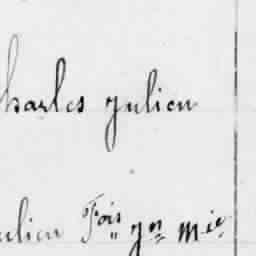 harles Julien
ulien Fois Jn Mie